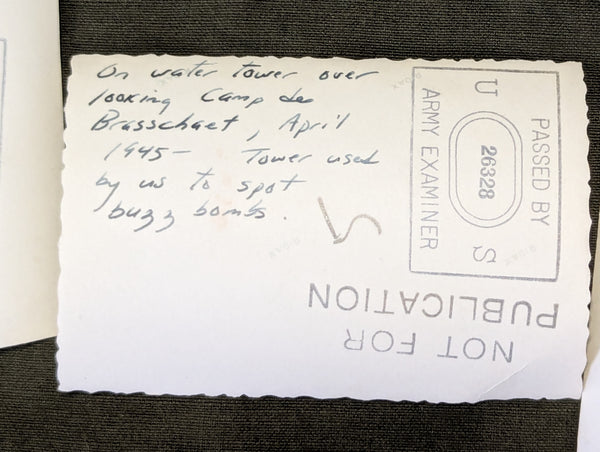 On water tower over
looking Camp de
Brasschaet, April
1945 - Tower used
by us to spot
buzz bombs.
PASSED BY
U 26328 S
ARMY EXAMINER
NOT FOR
PUBLICATION